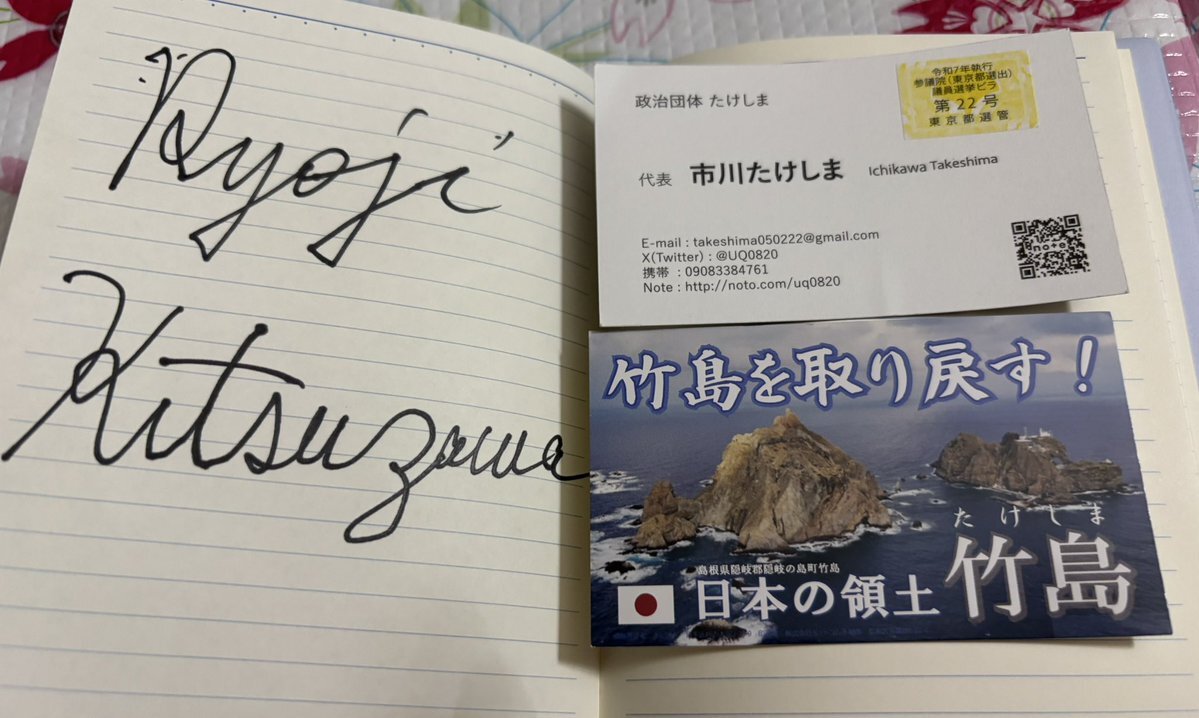 Ryoji
Kitsuzawa
政治団体 たけしま
令和7年執行
参議院(東京都選出)
議員選挙ビラ
第 22 号
東京都選管
代表 市川たけしま Ichikawa Takeshima
E-mail : takeshima050222@gmail.com
X(Twitter) : @UQ0820
携帯 : 09083384761
Note : http://noto.com/uq0820
竹島を取り戻す!
たけしま
島根県隠岐郡隠岐の島町竹島
日本の領土 竹島